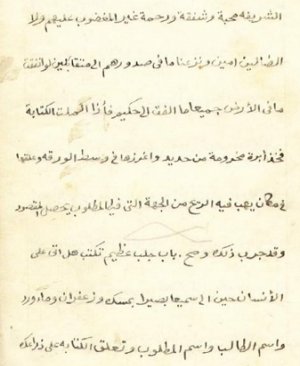 الشريفه محبة وشفقة ورحمة غير المغضوب عليهم ولا
الضالين امين ونزعنا ما فى صدورهم الى متقابلين لو انفقت
ما فى الأرض جميعا ما الفت الى حكيم فأذا كملت الكتابة
فخذ أبرة مخرومة من حديد واغرزها فى وسط الورقه وعلقها
فى مكان يهب فيه الريح من الجهة التى فيها المطلوب يحصل المقصود
وقد جرب ذلك وصح . باب جلب عظيم تكتب هل اتى على
الأنسان حين الى سميعا بصيرا بمسك وزعفران وماء ورد
واسم الطالب واسم المطلوب وتعلق الكتابه على ذراعك